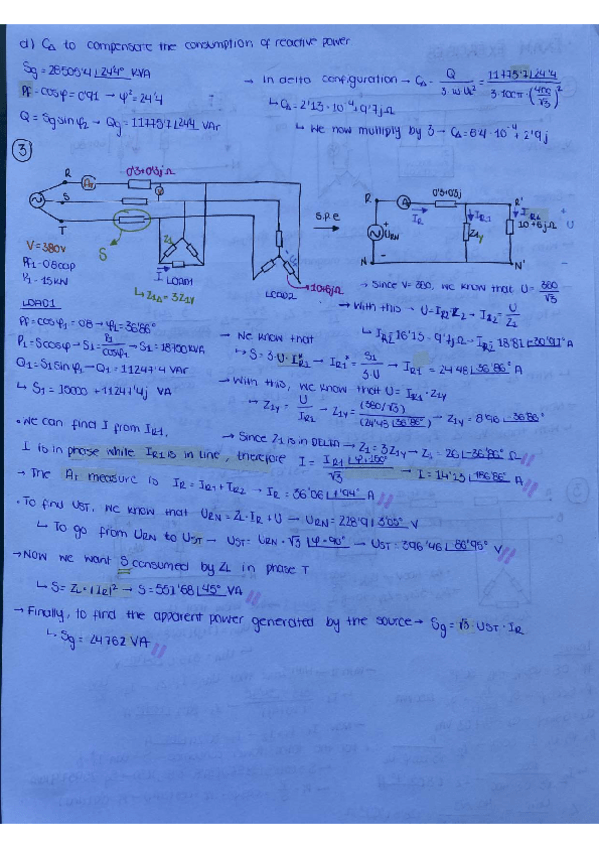 d) C∆ to compensate the consumption of reactive power
Sg = 28505'4 |24'4° KVA
PF - cosφ = 0'91 → φ² = 24'4
Q = Sg sinφ2 → Qg = 11775'7 |24'4 VAr
→ In delta configuration → C∆ = Q / 3·ω·UL² = 11775'7 |24'4 / 3·100π·(400/√3)²
↳ C∆ = 2'13·10⁻⁴ + 9'7jΩ
↳ We now multiply by 3 → C∆ = 6'4·10⁻⁴ + 2'9j
3
R
S
T
A1
0'3+0'3jΩ
V = 380V
PF1 - 0'8 cap
P1 - 15KW
S
Z1
I
LOAD1
↳ Z1∆ = 3Z1Y
LOAD2
10+6jΩ
s.p.e
R
A
0'3+0'3j
R'
IR
IR1
IR2
URN
Z1Y
10+6jΩ
U
N
N'
→ Since V = 380, we know that U = 380/√3
→ With this → U = IR2·Z2 → IR2 = U/Z2
↳ IR2 = 16'13 - 9'7jΩ → IR2 = 18'81 |30'97° A
LOAD1
PF = cosφ1 = 0'8 → φ1 = 36'86°
P1 = Scosφ → S1 = P1/cosφ1 → S1 = 18750 KVA
Q1 = S1 sinφ1 → Q1 = 11247'4 VAr
↳ S1 = 15000 + 11247'4j VA
→ We know that
↳ S = 3·U·I* → IR1* = S1/3·U → IR1 = 24'48 |36'86° A
→ With this, we know that U = IR1·Z1Y
↳ Z1Y = U/IR1 → Z1Y = (380/√3)/(24'48 |36'86°) → Z1Y = 8'96 |-36'86°
• We can find I from IR1,
→ Since Z1 is in DELTA → Z1 = 3Z1Y → Z1 = 26 |-36'86° Ω
I is in phase while IR1 is in line, therefore I = IR1 |φ+150° / √3 → I = 14'13 |186'86° A
→ The A1 measure is IR = IR1 + IR2 → IR = 36'06 |7'94° A
• To find UST, we know that URN = ZL·IR + U → URN = 228'9 |3'05° V
↳ To go from URN to UST → UST = URN·√3 |φ-90° → UST = 396'46 |-86'95° V
→ Now we want S consumed by ZL in phase T
↳ S = ZL·|IR|² → S = 551'68 |45° VA
→ Finally, to find the apparent power generated by the source → Sg = √3 UST·IR
↳ Sg = 24762 VA